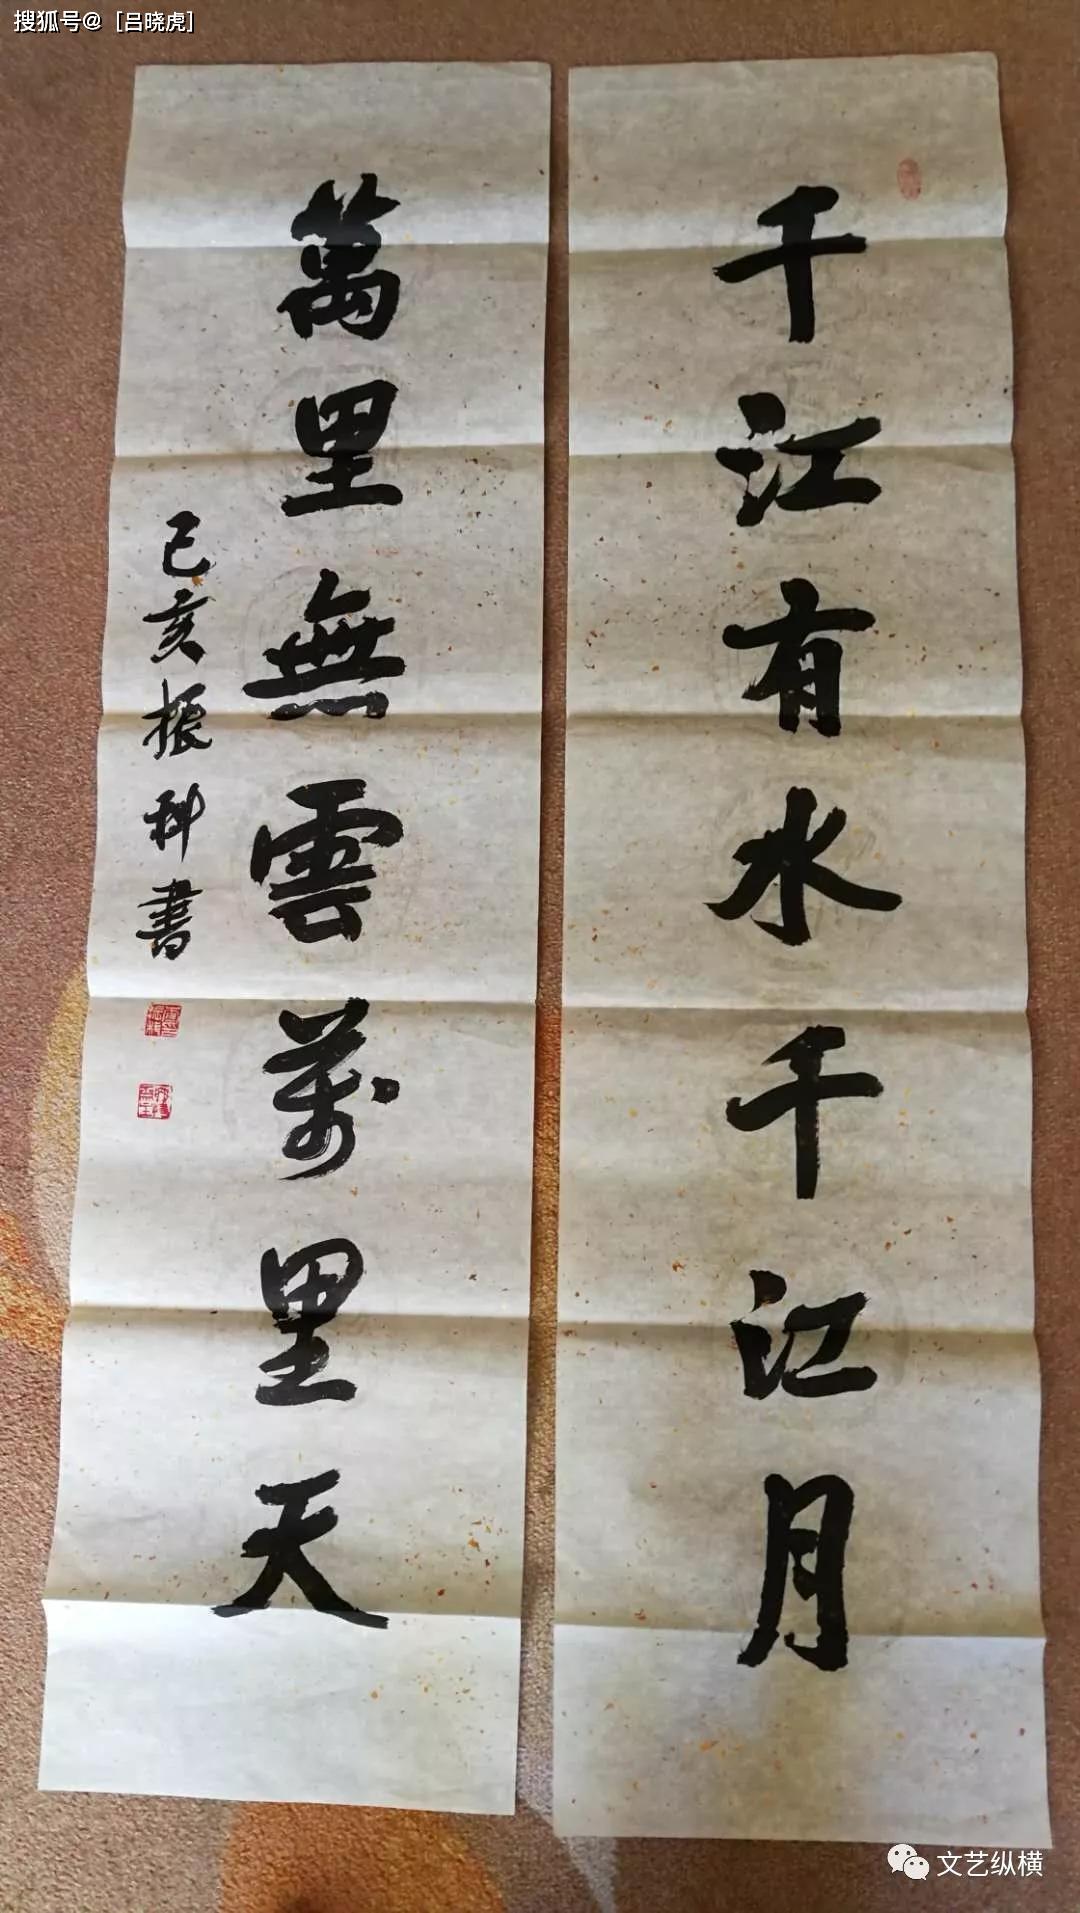 搜狐号@［吕晓虎］
千江有水千江月
萬里無雲萬里天
己亥振科書
文艺纵横